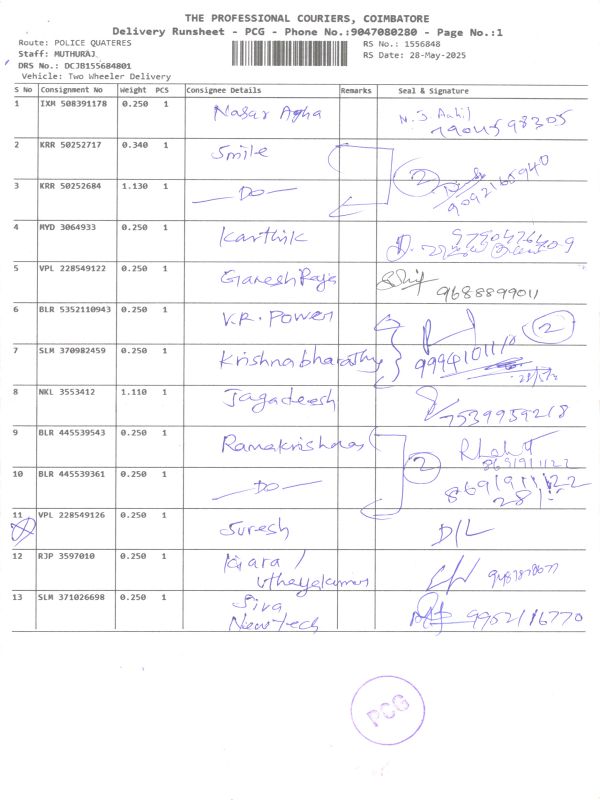 THE PROFESSIONAL COURIERS, COIMBATORE
Delivery Runsheet - PCG - Phone No.:9047080280 - Page No.:1
Route: POLICE QUATERES
RS No.: 1556848
Staff: MUTHURAJ
RS Date: 28-May-2025
DRS No.: DCJB155684801
Vehicle: Two Wheeler Delivery
S No Consignment No Weight PCS Consignee Details Remarks Seal & Signature
1 IXM 508391178 0.250 1 Nasar Agha
2 KRR 50252717 0.340 1 Smile
3 KRR 50252684 1.130 1 -DO- 2 9092165940
4 MYD 3064933 0.250 1 Karthik
5 VPL 228549122 0.250 1 Ganesh Raja 9688899011
6 BLR 5352110943 0.250 1 V.R. Power 2
7 SLM 370982459 0.250 1 Krishnabharathy 9994101110
8 NKL 3553412 1.110 1 Jagadeesh 7539959218
9 BLR 445539543 0.250 1 Ramakrishnas 8691911122
10 BLR 445539361 0.250 1 -DO- 2 8691911122
11 VPL 228549126 0.250 1 Suresh D/L
12 RJP 3597010 0.250 1 Kiara /
Uthayakumar
13 SLM 371026698 0.250 1 Siva
Newtech 9952116770
PCG